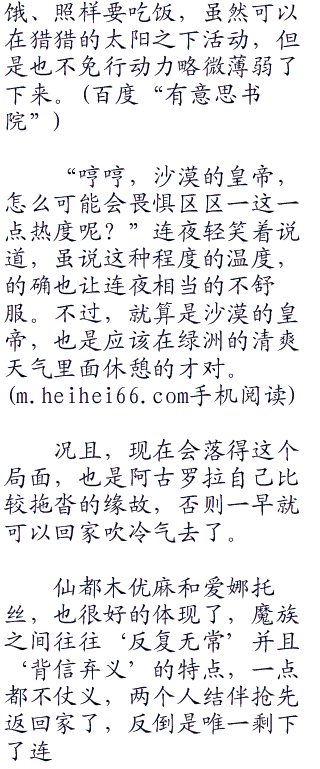 饿、照样要吃饭，虽然可以
在猎猎的太阳之下活动，但
是也不免行动力略微薄弱了
下来。(百度“有意思书
院”)
“哼哼，沙漠的皇帝，
怎么可能会畏惧区区一这一
点热度呢？”连夜轻笑着说
道，虽说这种程度的温度，
的确也让连夜相当的不舒
服。不过，就算是沙漠的皇
帝，也是应该在绿洲的清爽
天气里面休憩的才对。
(m.heihei66.com手机阅读)
况且，现在会落得这个
局面，也是阿古罗拉自己比
较拖沓的缘故，否则一早就
可以回家吹冷气去了。
仙都木优麻和爱娜托
丝，也很好的体现了，魔族
之间往往‘反复无常’并且
‘背信弃义’的特点，一点
都不仗义，两个人结伴抢先
返回家了，反倒是唯一剩下
了连